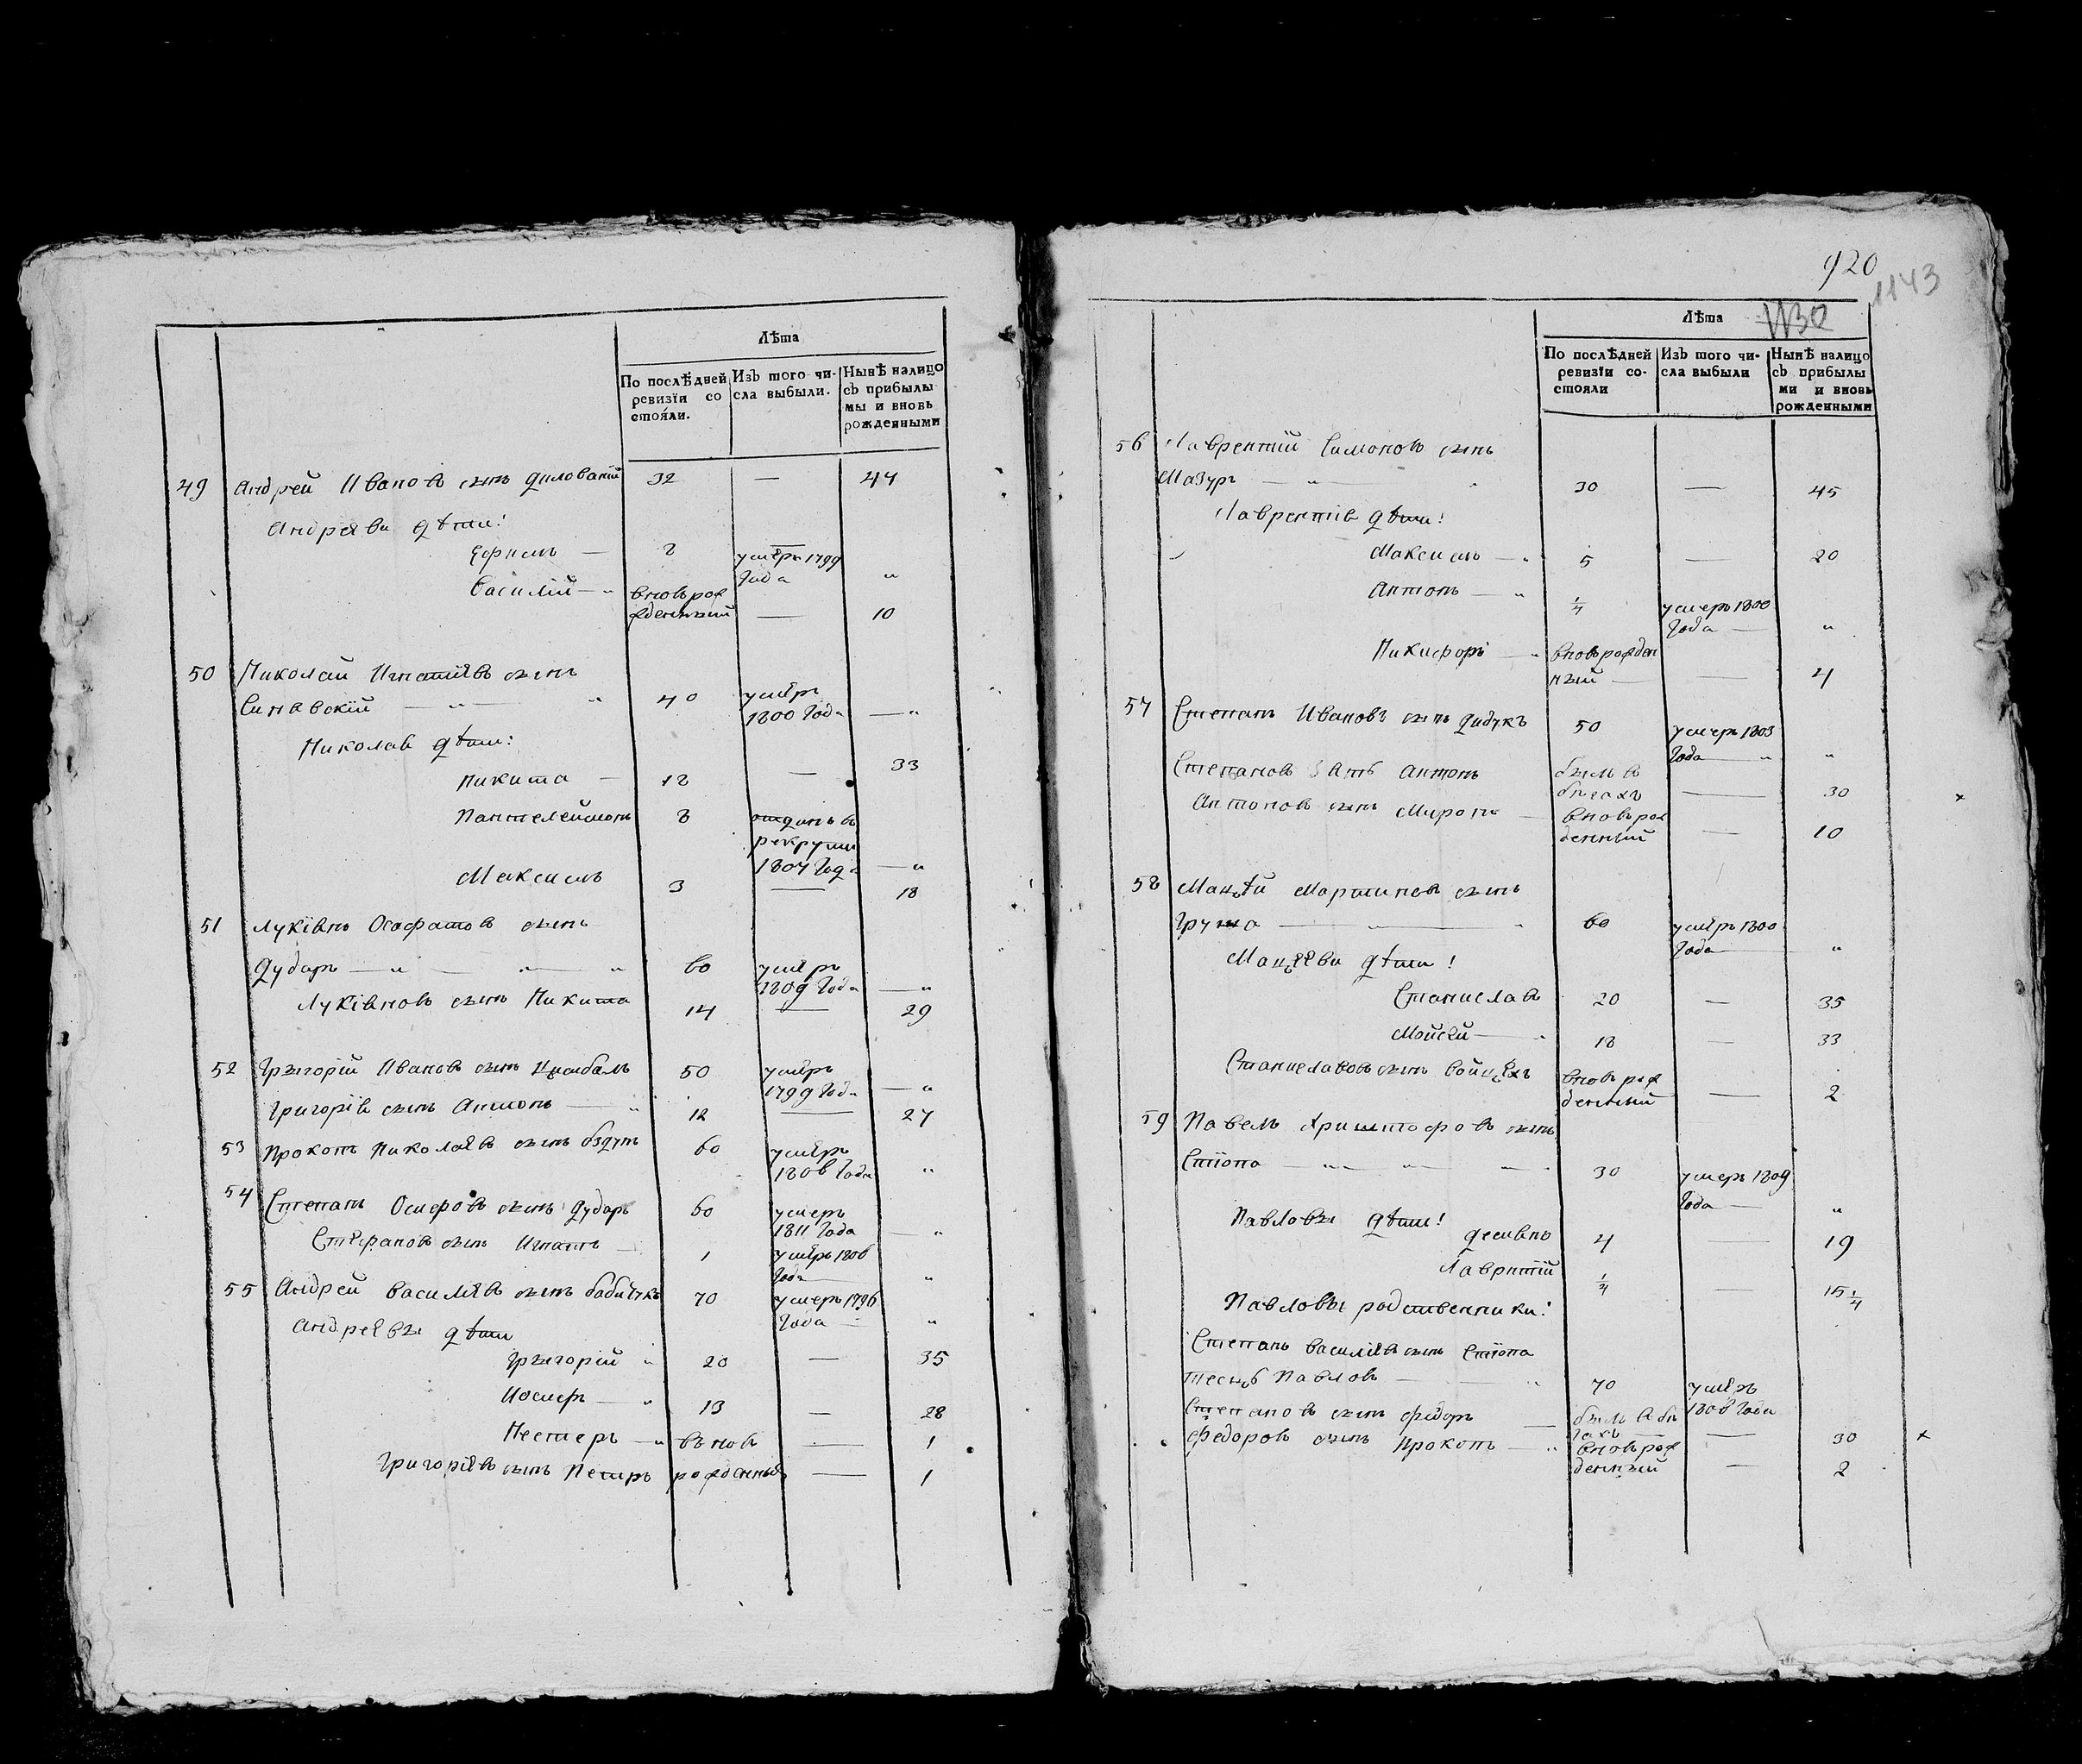 Лѣта
По послѣдней ревизїи со стоя́ли.
Изъ того чи- сла выбыли.
Нынѣ налицо съ прибылы мы и вновь рожденными
49 Андрей Иванов сынъ 32 — 44
Андреяви дѣти:
Ефимъ — 8 умеръ 1799 Года „
Василий — „ вновь рож жденный — 10
50 Николай Игнатіявъ сынъ
Синявский — „ — „ 40 умеръ 1800 Года — „
Николав дѣти:
Никита — 18 — 33
Пантелеймонъ 8 отданъ в рекруты 1804 Года — „
Максимъ 3 — 18
51 Лукіянъ Осафатовъ сынъ
Дударъ — „ — „ — „ 60 умеръ 1809 Года — „
Лукіянов сынъ Никита 14 — 29
52 Грыгорій Иванов сынъ Цымбалъ 50 умеръ 1799 Года — „
Григорів сынъ Антонъ — „ 12 — 27
53 Прокопъ Николаявъ сынъ 60 умеръ 1806 Года „
54 Степанъ Осифовъ сынъ Дударъ 60 умеръ 1811 Года — „
Стефановъ сынъ Игнатъ — 1 умеръ 1806 Года „
55 Андрей Василявъ сынъ Бабичукъ 70 умеръ 1796 Года — „
Андреявы дѣти
Грыгорій „ 20 — 35
Иосифъ — „ 13 — 28
Нестеръ — „ въновь — 1
Григоріявъ сынъ Петръ рожденный — 1
920
1143
1130
Лѣта
По послѣдней ревизїи со- стояли
Изъ того чи- сла выбыли
Нынѣ налицо съ прибылы ми и вновь рожденными
56 Лаврентій Симоновъ сынъ
Мазуръ — „ — „ 30 — 45
Лаврентів дѣти:
Максимъ — „ 5 — 20
Антонъ — „ 1/4 умеръ 1800 Года — „
Никифоръ — „ вновь рожден ный — — 4
57 Степанъ Ивановъ сынъ Дидукъ 50 умеръ 1803 Года — „ „
Степановъ зять Антонъ былъ в бегахъ — 30 ×
Антоновъ сынъ Миронъ — вновь рож денный — 10
58 Мацѣй Мартиновъ сынъ
Груша — — „ 60 умеръ 1800 Года — „
Мацеяви дѣти:
Станиславъ 20 — 35
Мойсѣй — „ 18 — 33
Станиславовъ сынъ Войцехъ вновь рож денный — 2
59 Павелъ Криштофовъ сынъ
Стіопа — „ — „ — 30 умеръ 1809 Года — „
Павловы дѣти:
Демянъ 4 — 19
Лаврнтій 1/4 — 15 1/4
Павловы родственники:
Степанъ Василявъ сынъ Стіопа
тесцъ Павловъ — „ 70 умеръ 1808 Года
Степановъ сынъ Федоръ — былъ в бе гахъ — 30 ×
Федоровъ сынъ Прокопъ — „ вновь рож денный — 2